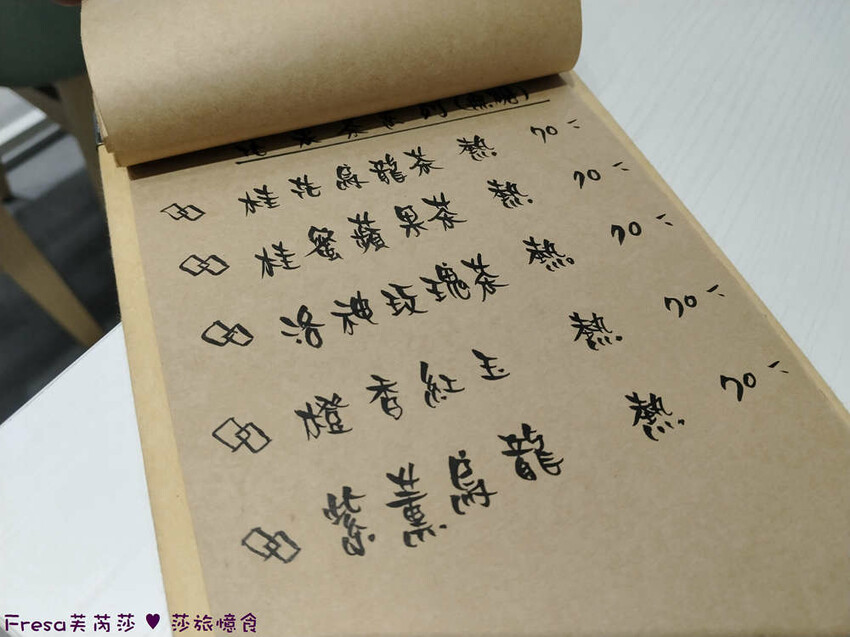 茶系列(無糖)
桂花烏龍茶 熱 70
桂蜜蘋果茶 熱 70
洛神玫瑰茶 熱 70
橙香紅玉 熱 70
紫薰烏龍 熱 70
Fresa芙芮莎 ♥ 莎旅憶食